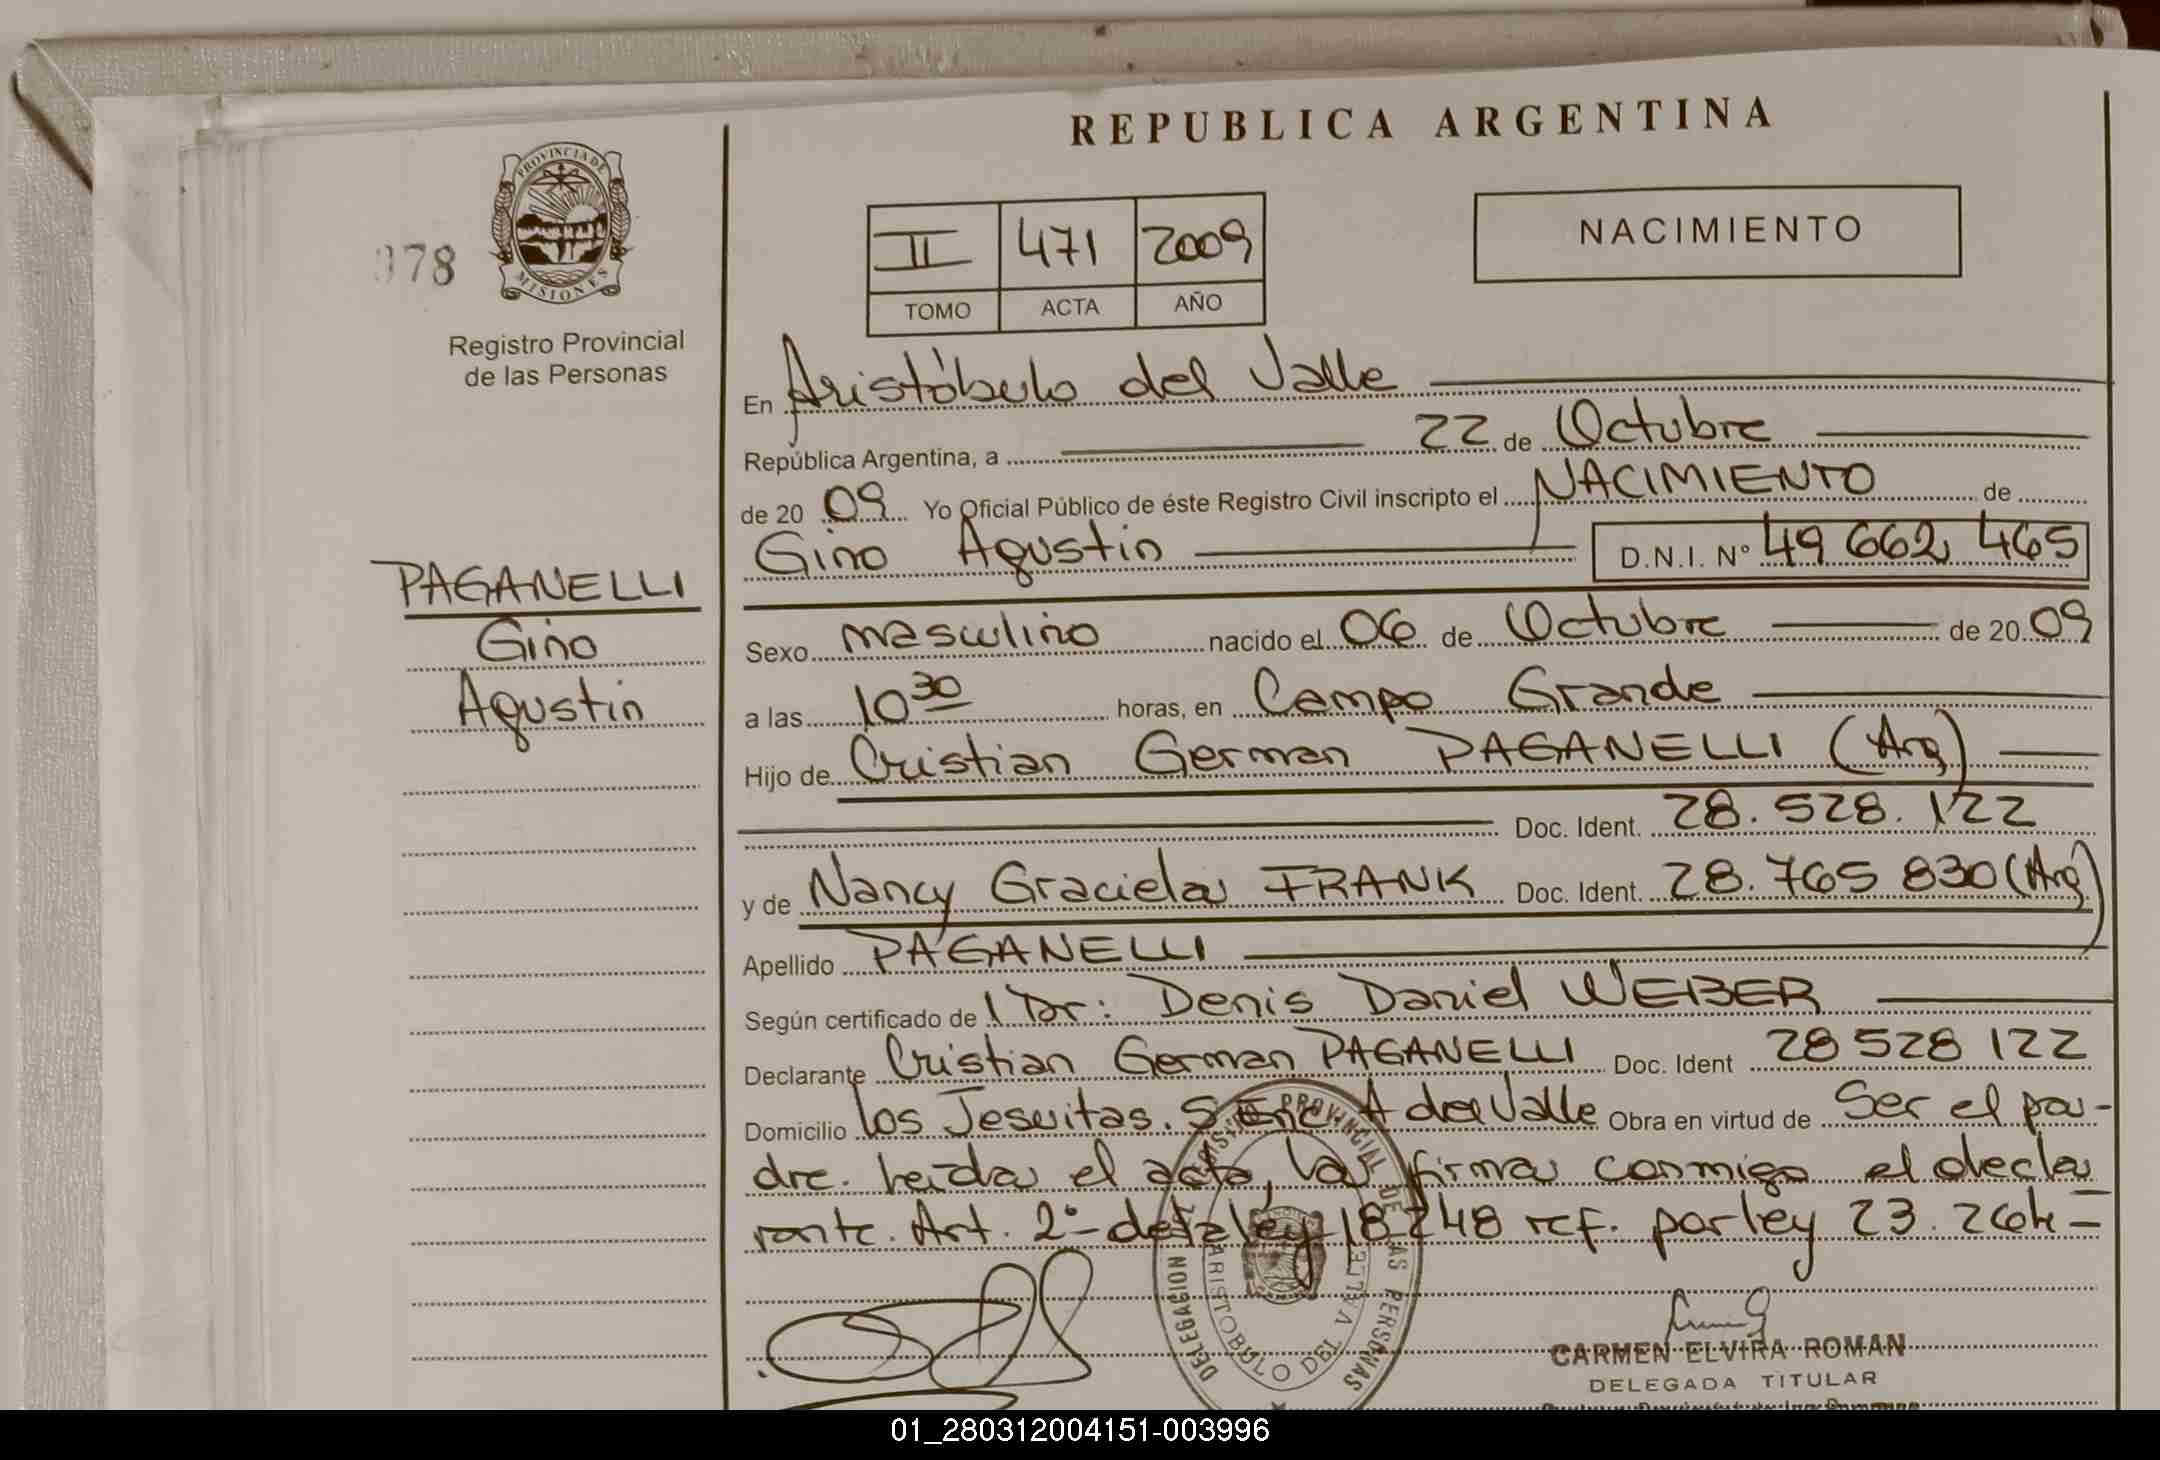 REPUBLICA ARGENTINA
PROVINCIA DE
MISIONES
378
Registro Provincial
de las Personas
II 471 2009
TOMO ACTA AÑO
NACIMIENTO
En Aristóbulo del Valle
República Argentina, a 22 de Octubre
de 20 09 Yo Oficial Público de éste Registro Civil inscripto el NACIMIENTO de
Gino Agustin D.N.I. Nº 49 662 465
PAGANELLI
Gino
Agustin
Sexo masculino nacido el 06 de Octubre de 20 09
a las 10 30 horas, en Campo Grande
Hijo de Cristian German PAGANELLI (Arg)
Doc. Ident. 28.528.122
y de Nancy Graciela FRANK Doc. Ident. 28.765 830 (Arg)
Apellido PAGANELLI
Según certificado de 1 Dr: Denis Daniel WEBER
Declarante Cristian German PAGANELLI Doc. Ident 28 528 122
Domicilio los Jesuitas. S Enc A del Valle Obra en virtud de Ser el pa-
dre. leida el acta, la firma conmigo el decla
rante. Art. 2º- de la ley 18248 ref. por ley 23.264-
DELEGASION REGISTRO PROVINCIAL DE LAS PERSONAS
ARISTOBULO DEL VALLE
CARMEN ELVIRA ROMAN
DELEGADA TITULAR
01_280312004151-003996